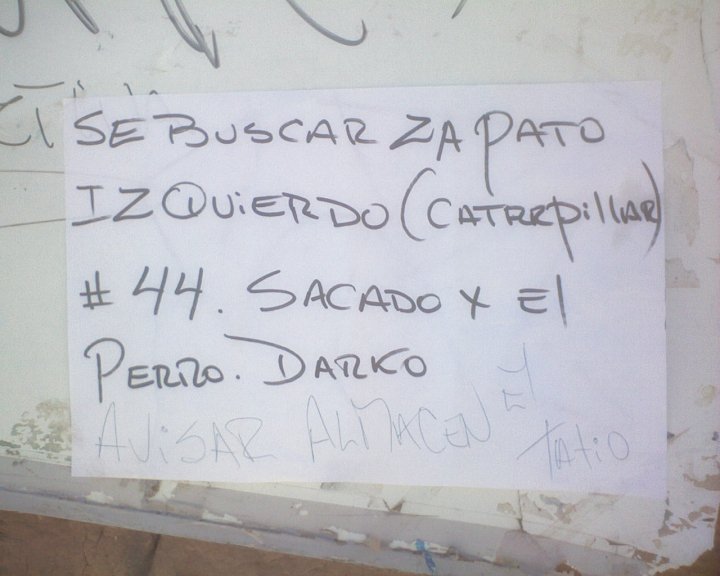 SE BUSCAR ZAPATO
IZQUIERDO (CATRRPillAR)
# 44. SACADO X El
PERRO. DARKO
AVISAR ALMACEN El
TATIO